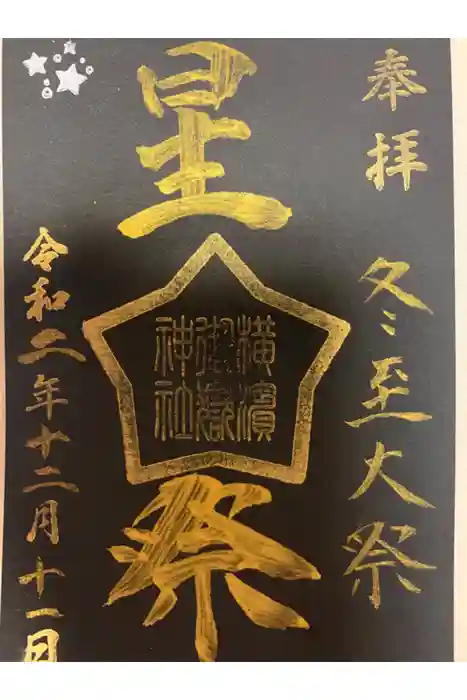 奉拝 冬至大祭
星祭
横濱
御嶽
神社
令和二年十二月十一日